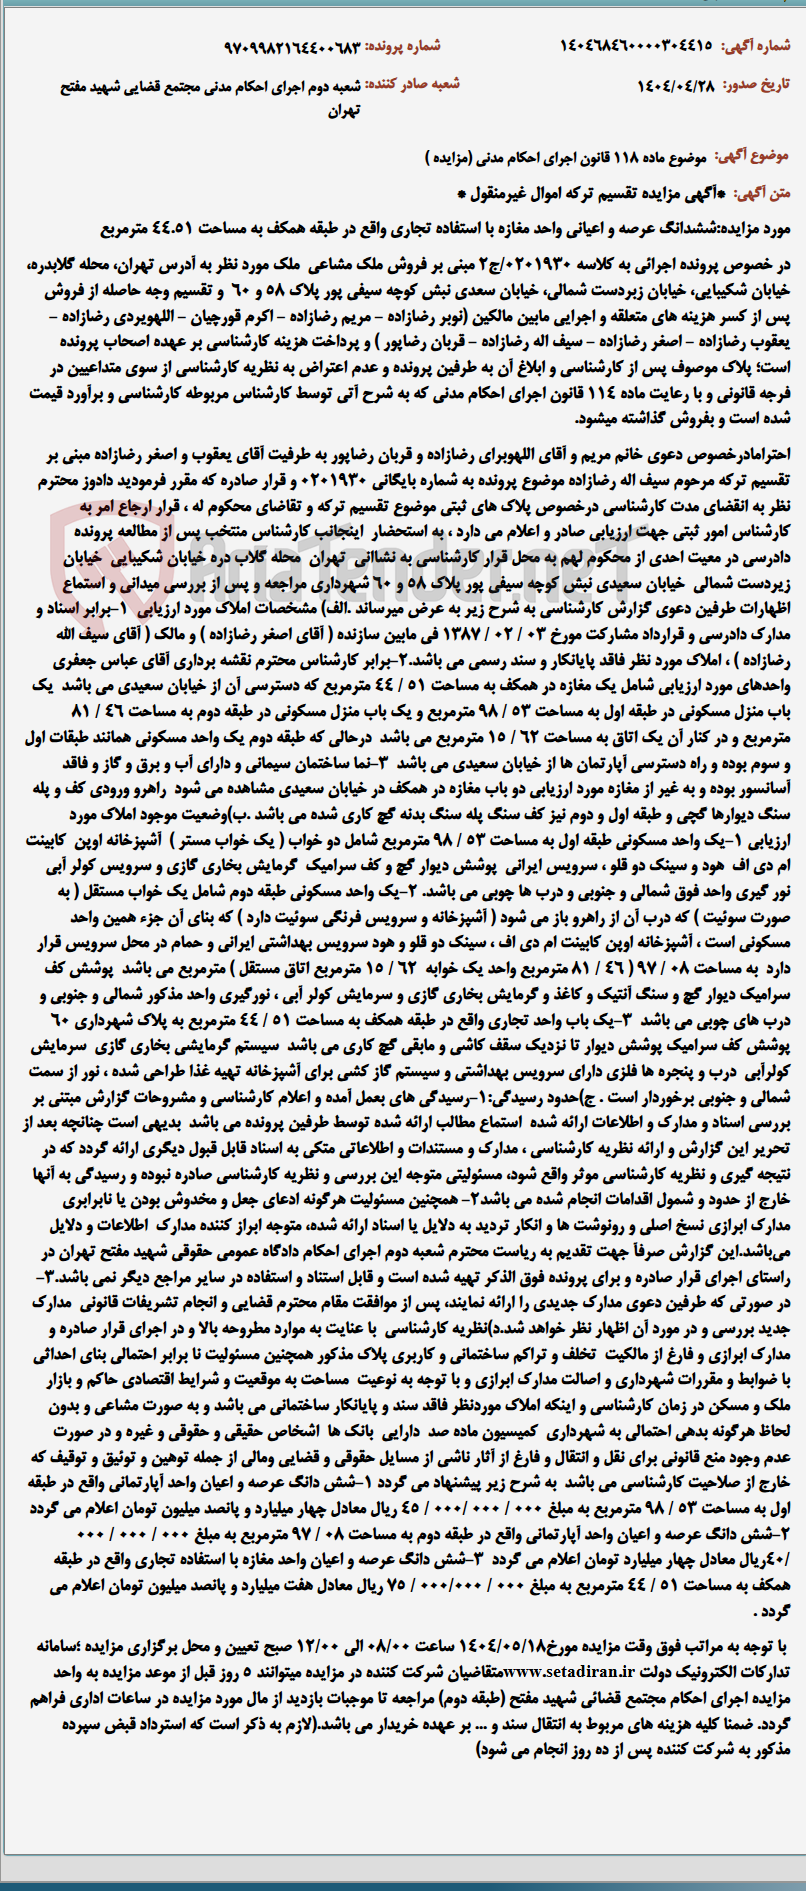 شماره آگهی: ۱۴۰۴۶۸۴۶۰۰۰۰۳۰۴۴۱۵ شماره پرونده: ۹۷۰۹۹۸۲۱۶۴۴۰۰۶۸۳
تاریخ صدور: ۱۴۰۴/۰۴/۲۸ شعبه صادر کننده: شعبه دوم اجرای احکام مدنی مجتمع قضایی شهید مفتح
تهران
موضوع آگهی: موضوع ماده ۱۱۸ قانون اجرای احکام مدنی (مزایده )
متن آگهی: *آگهی مزایده تقسیم ترکه اموال غیرمنقول *
مورد مزایده:ششدانگ عرصه و اعیانی واحد مغازه با استفاده تجاری واقع در طبقه همکف به مساحت ۴۴.۵۱ مترمربع
در خصوص پرونده اجرائی به کلاسه ۰۲۰۱۹۳۰/ج۲ مبنی بر فروش ملک مشاعی ملک مورد نظر به آدرس تهران، محله گلابدره،
خیابان شکیبایی، خیابان زبردست شمالی، خیابان سعدی نبش کوچه سیفی پور پلاک ۵۸ و ۶۰ و تقسیم وجه حاصله از فروش
پس از کسر هزینه های متعلقه و اجرایی مابین مالکین (نوبر رضازاده – مریم رضازاده – اکرم قورچیان – اللهویردی رضازاده –
یعقوب رضازاده – اصغر رضازاده – سیف اله رضازاده – قربان رضاپور ) و پرداخت هزینه کارشناسی بر عهده اصحاب پرونده
است؛ پلاک موصوف پس از کارشناسی و ابلاغ آن به طرفین پرونده و عدم اعتراض به نظریه کارشناسی از سوی متداعیین در
فرجه قانونی و با رعایت ماده ۱۱۴ قانون اجرای احکام مدنی که به شرح آتی توسط کارشناس مربوطه کارشناسی و برآورد قیمت
شده است و بفروش گذاشته میشود.
احترامادرخصوص دعوی خانم مریم و آقای اللهوبرای رضازاده و قربان رضاپور به طرفیت آقای یعقوب و اصغر رضازاده مبنی بر
تقسیم ترکه مرحوم سیف اله رضازاده موضوع پرونده به شماره بایگانی ۰۲۰۱۹۳۰ و قرار صادره که مقرر فرمودید دادوز محترم
نظر به انقضای مدت کارشناسی درخصوص پلاک های ثبتی موضوع تقسیم ترکه و تقاضای محکوم له ، قرار ارجاع امر به
کارشناس امور ثبتی جهت ارزیابی صادر و اعلام می دارد ، به استحضار اینجانب کارشناس منتخب پس از مطالعه پرونده
دادرسی در معیت احدی از محکوم لهم به محل قرار کارشناسی به نشانی تهران محله گلاب دره خیابان شکیبایی خیابان
زیردست شمالی خیابان سعیدی نبش کوچه سیفی پور پلاک ۵۸ و ۶۰ شهرداری مراجعه و پس از بررسی میدانی و استماع
اظهارات طرفین دعوی گزارش کارشناسی به شرح زیر به عرض میرساند .الف) مشخصات املاک مورد ارزیابی ۱-برابر اسناد و
مدارک دادرسی و قرارداد مشارکت مورخ ۰۳ / ۰۲ / ۱۳۸۷ فی مابین سازنده ( آقای اصغر رضازاده ) و مالک ( آقای سیف الله
رضازاده ) ، املاک مورد نظر فاقد پایانکار و سند رسمی می باشد.۲-برابر کارشناس محترم نقشه برداری آقای عباس جعفری
واحدهای مورد ارزیابی شامل یک مغازه در همکف به مساحت ۵۱ / ۴۴ مترمربع که دسترسی آن از خیابان سعیدی می باشد یک
باب منزل مسکونی در طبقه اول به مساحت ۵۳ / ۹۸ مترمربع و یک باب منزل مسکونی در طبقه دوم به مساحت ۴۶ / ۸۱
مترمربع و در کنار آن یک اتاق به مساحت ۶۲ / ۱۵ مترمربع می باشد درحالی که طبقه دوم یک واحد مسکونی همانند طبقات اول
و سوم بوده و راه دسترسی آپارتمان ها از خیابان سعیدی می باشد ۳-نما ساختمان سیمانی و دارای آب و برق و گاز و فاقد
آسانسور بوده و به غیر از مغازه مورد ارزیابی دو باب مغازه در همکف در خیابان سعیدی مشاهده می شود راهرو ورودی کف و پله
سنگ دیوارها گچی و طبقه اول و دوم نیز کف سنگ پله سنگ بدنه گچ کاری شده می باشد .ب)وضعیت موجود املاک مورد
ارزیابی ۱-یک واحد مسکونی طبقه اول به مساحت ۵۳ / ۹۸ مترمربع شامل دو خواب ( یک خواب مستر ) آشپزخانه اوپن کابینت
ام دی اف هود و سینک دو قلو ، سرویس ایرانی پوشش دیوار گچ و کف سرامیک گرمایش بخاری گازی و سرویس کولر آبی
نور گیری واحد فوق شمالی و جنوبی و درب ها چوبی می باشد. ۲-یک واحد مسکونی طبقه دوم شامل یک خواب مستقل ( به
صورت سوئیت ) که درب آن از راهرو باز می شود ( آشپزخانه و سرویس فرنگی سوئیت دارد ) که بنای آن جزء همین واحد
مسکونی است ، آشپزخانه اوپن کابینت ام دی اف ، سینک دو قلو و هود سرویس بهداشتی ایرانی و حمام در محل سرویس قرار
دارد به مساحت ۰۸ / ۹۷ ( ۴۶ / ۸۱ مترمربع واحد یک خوابه ۶۲ / ۱۵ مترمربع اتاق مستقل ) مترمربع می باشد پوشش کف
سرامیک دیوار گچ و سنگ آنتیک و کاغذ و گرمایش بخاری گازی و سرمایش کولر آبی ، نورگیری واحد مذکور شمالی و جنوبی و
درب های چوبی می باشد ۳-یک باب واحد تجاری واقع در طبقه همکف به مساحت ۵۱ / ۴۴ مترمربع به پلاک شهرداری ۶۰
پوشش کف سرامیک پوشش دیوار تا نزدیک سقف کاشی و مابقی گچ کاری می باشد سیستم گرمایشی بخاری گازی سرمایش
کولرآبی درب و پنجره ها فلزی دارای سرویس بهداشتی و سیستم گاز کشی برای آشپزخانه تهیه غذا طراحی شده ، نور از سمت
شمالی و جنوبی برخوردار است . ج)حدود رسیدگی:۱-رسیدگی های بعمل آمده و اعلام کارشناسی و مشروحات گزارش مبتنی بر
بررسی اسناد و مدارک و اطلاعات ارائه شده استماع مطالب ارائه شده توسط طرفین پرونده می باشد بدیهی است چنانچه بعد از
تحریر این گزارش و ارائه نظریه کارشناسی ، مدارک و مستندات و اطلاعاتی متکی به اسناد قابل قبول دیگری ارائه گردد که در
نتیجه گیری و نظریه کارشناسی موثر واقع شود، مسئولیتی متوجه این بررسی و نظریه کارشناسی صادره نبوده و رسیدگی به آنها
خارج از حدود و شمول اقدامات انجام شده می باشد۲- همچنین مسئولیت هرگونه ادعای جعل و مخدوش بودن یا نابرابری
مدارک ابرازی نسخ اصلی و رونوشت ها و انکار تردید به دلایل یا اسناد ارائه شده، متوجه ابراز کننده مدارک اطلاعات و دلایل
می‌باشد.این گزارش صرفاً جهت تقدیم به ریاست محترم شعبه دوم اجرای احکام دادگاه عمومی حقوقی شهید مفتح تهران در
راستای اجرای قرار صادره و برای پرونده فوق الذکر تهیه شده است و قابل استناد و استفاده در سایر مراجع دیگر نمی باشد.۳-
در صورتی که طرفین دعوی مدارک جدیدی را ارائه نمایند، پس از موافقت مقام محترم قضایی و انجام تشریفات قانونی مدارک
جدید بررسی و در مورد آن اظهار نظر خواهد شد.د)نظریه کارشناسی با عنایت به موارد مطروحه بالا و در اجرای قرار صادره و
مدارک ابرازی و فارغ از مالکیت تخلف و تراکم ساختمانی و کاربری پلاک مذکور همچنین مسئولیت نا برابر احتمالی بنای احداثی
با ضوابط و مقررات شهرداری و اصالت مدارک ابرازی و با توجه به نوعیت مساحت به موقعیت و شرایط اقتصادی حاکم و بازار
ملک و مسکن در زمان کارشناسی و اینکه املاک موردنظر فاقد سند و پایانکار ساختمانی می باشد و به صورت مشاعی و بدون
لحاظ هرگونه بدهی احتمالی به شهرداری کمیسیون ماده صد دارایی بانک ها اشخاص حقیقی و حقوقی و غیره و در صورت
عدم وجود منع قانونی برای نقل و انتقال و فارغ از آثار ناشی از مسایل حقوقی و قضایی ومالی از جمله توهین و توثیق و توقیف که
خارج از صلاحیت کارشناسی می باشد به شرح زیر پیشنهاد می گردد ۱-شش دانگ عرصه و اعیان واحد آپارتمانی واقع در طبقه
اول به مساحت ۵۳ / ۹۸ مترمربع به مبلغ ۰۰۰ / ۰۰۰ /۰۰۰ / ۴۵ ریال معادل چهار میلیارد و پانصد میلیون تومان اعلام می گردد
۲-شش دانگ عرصه و اعیان واحد آپارتمانی واقع در طبقه دوم به مساحت ۰۸ / ۹۷ مترمربع به مبلغ ۰۰۰ / ۰۰۰ / ۰۰۰
/۴۰ریال معادل چهار میلیارد تومان اعلام می گردد ۳-شش دانگ عرصه و اعیان واحد مغازه با استفاده تجاری واقع در طبقه
همکف به مساحت ۵۱ / ۴۴ مترمربع به مبلغ ۰۰۰ / ۰۰۰/۰۰۰ / ۷۵ ریال معادل هفت میلیارد و پانصد میلیون تومان اعلام می
گردد .
با توجه به مراتب فوق وقت مزایده مورخ۱۴۰۴/۰۵/۱۸ ساعت ۰۸/۰۰ الی ۱۲/۰۰ صبح تعیین و محل برگزاری مزایده ؛سامانه
تدارکات الکترونیک دولت www.setadiran.irمتقاضیان شرکت کننده در مزایده میتوانند ۵ روز قبل از موعد مزایده به واحد
مزایده اجرای احکام مجتمع قضائی شهید مفتح (طبقه دوم) مراجعه تا موجبات بازدید از مال مورد مزایده در ساعات اداری فراهم
گردد. ضمنا کلیه هزینه های مربوط به انتقال سند و ... بر عهده خریدار می باشد.(لازم به ذکر است که استرداد قبض سپرده
مذکور به شرکت کننده پس از ده روز انجام می شود)
AriaTender.neT